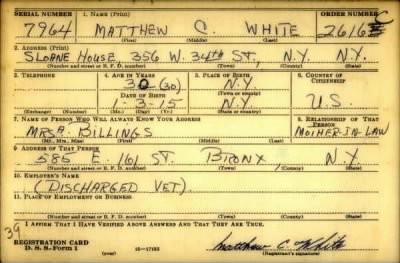 SERIAL NUMBER 1. NAME (Print) ORDER NUMBER
7964 MATTHEW C. WHITE 2616
(First) (Middle) (Last)
2. ADDRESS (Print)
SLOANE HOUSE 356 W. 34th ST., N.Y. N.Y.
(Number and street or R. F. D. number) (Town) (County) (State)
3. TELEPHONE 4. AGE IN YEARS 5. PLACE OF BIRTH 6. COUNTRY OF CITIZENSHIP
30 (30) N.Y.
DATE OF BIRTH (Town or county)
1-3-15 N.Y. U.S.
(Exchange) (Number) (Mo.) (Day) (Yr.) (State or country)
7. NAME OF PERSON WHO WILL ALWAYS KNOW YOUR ADDRESS 8. RELATIONSHIP OF THAT PERSON
MRS. BILLINGS MOTHER-IN-LAW
(Mr., Mrs., Miss) (First) (Middle) (Last)
9. ADDRESS OF THAT PERSON
585 E. 161 ST. BRONX, N.Y.
(Number and street or R. F. D. number) (Town) (County) (State)
10. EMPLOYER'S NAME
(DISCHARGED VET.)
11. PLACE OF EMPLOYMENT OR BUSINESS
(Number and street or R. F. D. number) (Town) (County) (State)
39 I AFFIRM THAT I HAVE VERIFIED ABOVE ANSWERS AND THAT THEY ARE TRUE.
REGISTRATION CARD
D. S. S. Form 1 16-17105 Matthew C. White
(over) (Registrant's signature)